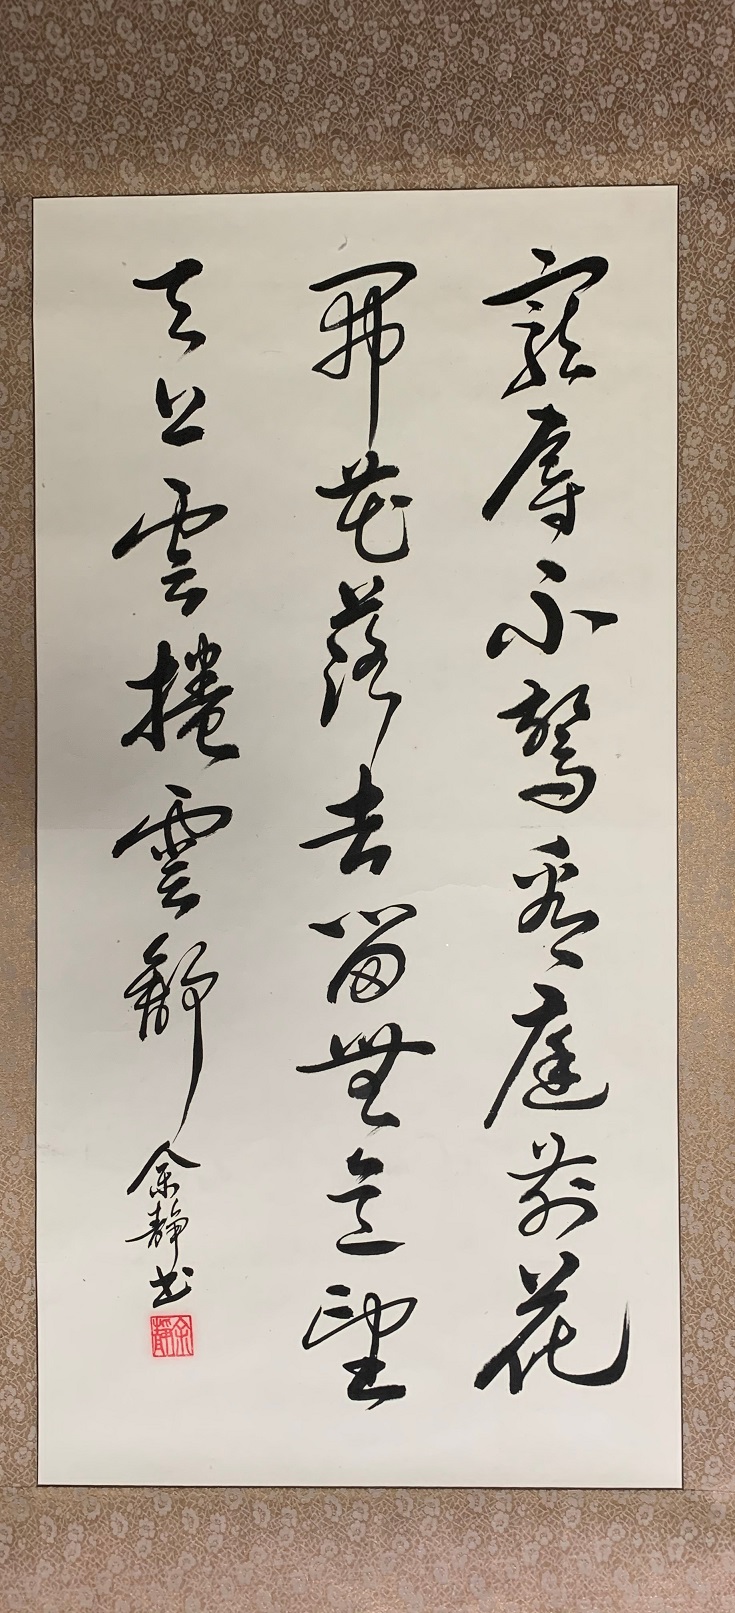 寵辱不驚看庭前花
開花落去留無意望
天上雲捲雲舒
余靜书
余靜